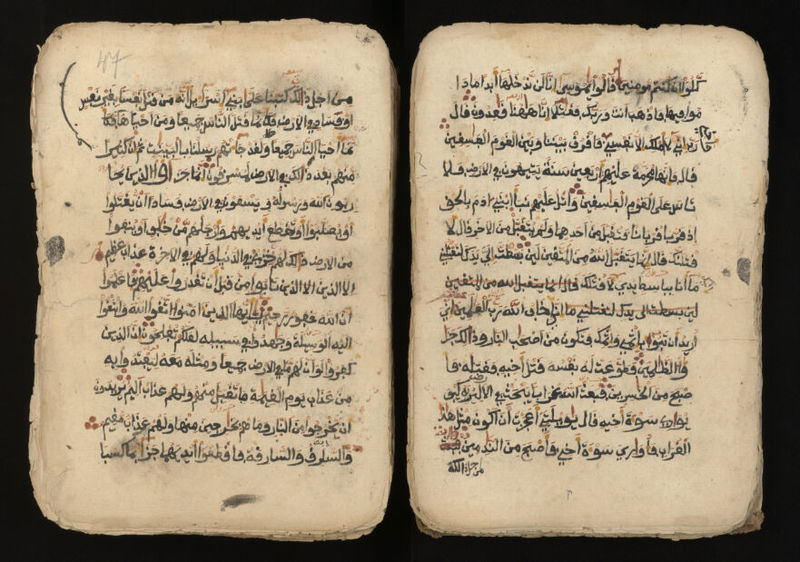 كلوا ان كنتم مومنين قالوا يموسى انا لن ندخلها ابدا ما دا
موا فيها فاذهب انت وربك فقتلا انا ههنا قعدون قال
رب اني لا املك الا نفسي فافرق بيننا وبين القوم الفسقين
قال فانها محرمة عليهم اربعين سنة يتيهون في الارض فلا
تاس على القوم الفسقين واتل عليهم نبا ابني ادم بالحق
اذ قربا قربانا فتقبل من احدهما ولم يتقبل من الاخر قال لا
قتلنك قال انما يتقبل الله من المتقين لين بسطت الي يدك لتقتلني
ما انا بباسط يدي لاقتلك قال انما يتقبل الله من المتقين
لين بسطت الي يدك لتقتلني ما اني اخاف الله رب العلمين اني
اريد ان تبوا باثمي واثمك فتكون من اصحب النار وذلك جزا
وا الظلمين فطوعت له نفسه قتل اخيه فقتله فا
صبح من الخسرين فبعث الله غرابا يبحث في الارض ليريه كيف
يواري سوءة اخيه قال يويلتي اعجزت ان اكون مثل هذا
الغراب فاواري سوءة اخي فاصبح من الندمين
من اجل ذلك
47
من اجل ذلك كتبنا على بني اسرايل انه من قتل نفسا بغير نفس
او فساد في الارض فكانما قتل الناس جميعا ومن احياها فكا
نما احيا الناس جميعا ولقد جاتهم رسلنا بالبينت ثم ان كثيرا
منهم بعد ذلك في الارض لمسرفون انما جزاوا الذين يحا
ربون الله ورسوله ويسعون في الارض فسادا ان يقتلوا
او يصلبوا او تقطع ايديهم وارجلهم من خلف او ينفوا
من الارض ذلك لهم خزي في الدنيا ولهم في الاخرة عذاب عظيم
الا الذين تابوا من قبل ان تقدروا عليهم فاعلموا
ان الله غفور رحيم يايها الذين امنوا اتقوا الله وابتغوا
اليه الوسيلة وجهدوا في سبيله لعلكم تفلحون ان الذين
كفروا لو ان لهم ما في الارض جميعا ومثله معه ليفتدوا به
من عذاب يوم القيمة ما تقبل منهم ولهم عذاب اليم يريدون
ان يخرجوا من النار وما هم بخارجين منها ولهم عذاب مقيم
والسارق والسارقة فاقطعوا ايديهما جزا بما كسبا